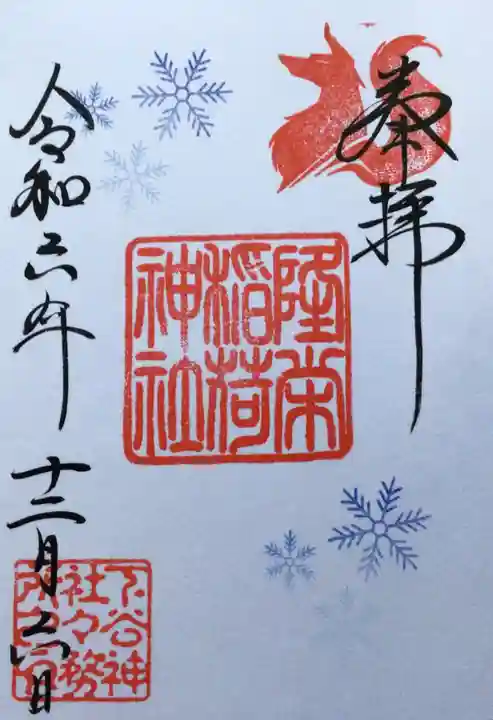 奉拝
隆栄
稲荷
神社
令和六年 十二月六日
下谷神
社々務
所之印